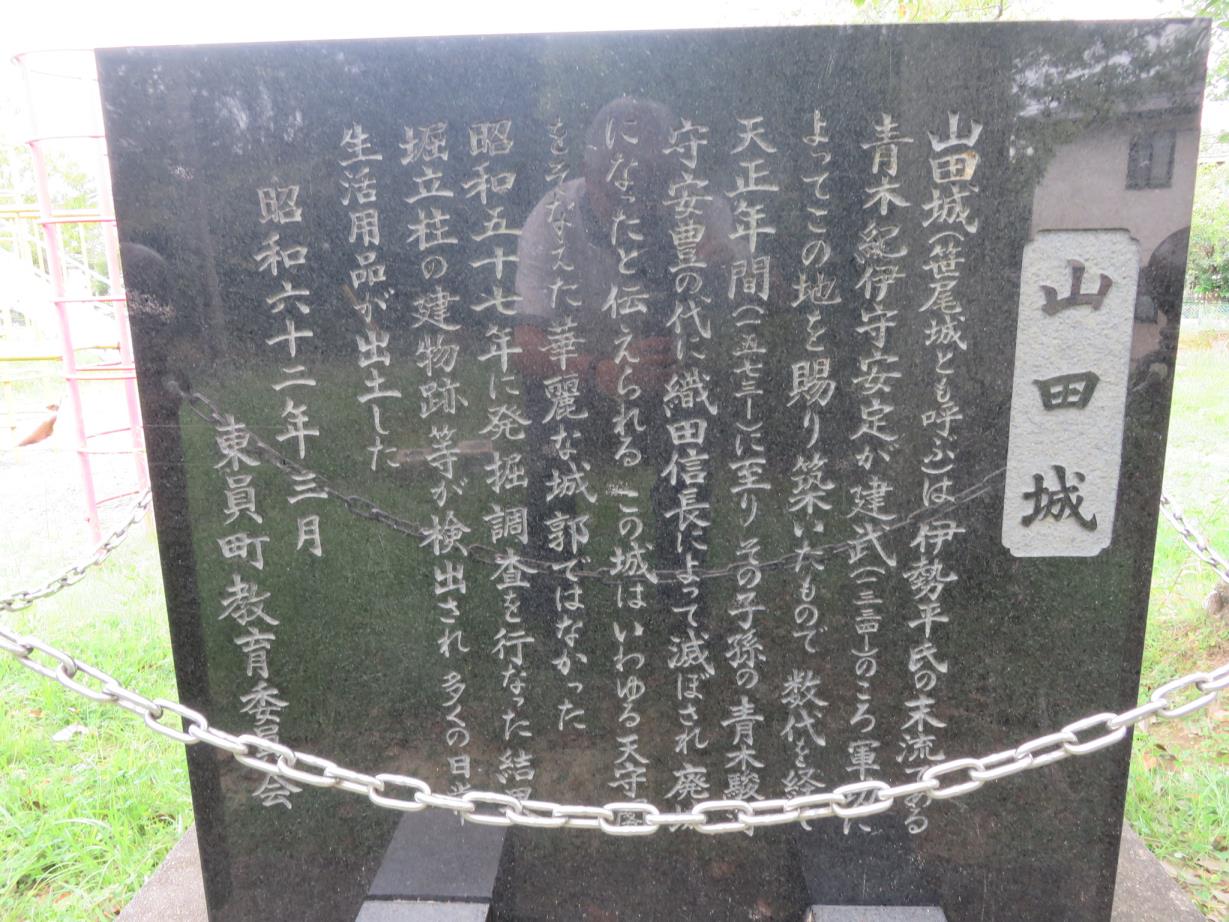 山田城
山田城(笹尾城とも呼ぶ)は 伊勢平氏の末流である
青木紀伊守安定が建武(一三三四―)のころ軍功に
よってこの地を賜り築いたもので 数代を経て
天正年間(一五七三―)に至り その子孫の青木駿河
守安豊の代に織田信長によって滅ぼされ 廃城
になったと伝えられる この城はいわゆる天守閣
をそなえた華麗な城郭ではなかった
昭和五十七年に発掘調査を行なった結果
堀立柱の建物跡等が検出され 多くの日常
生活用品が出土した
昭和六十二年三月
東員町教育委員会